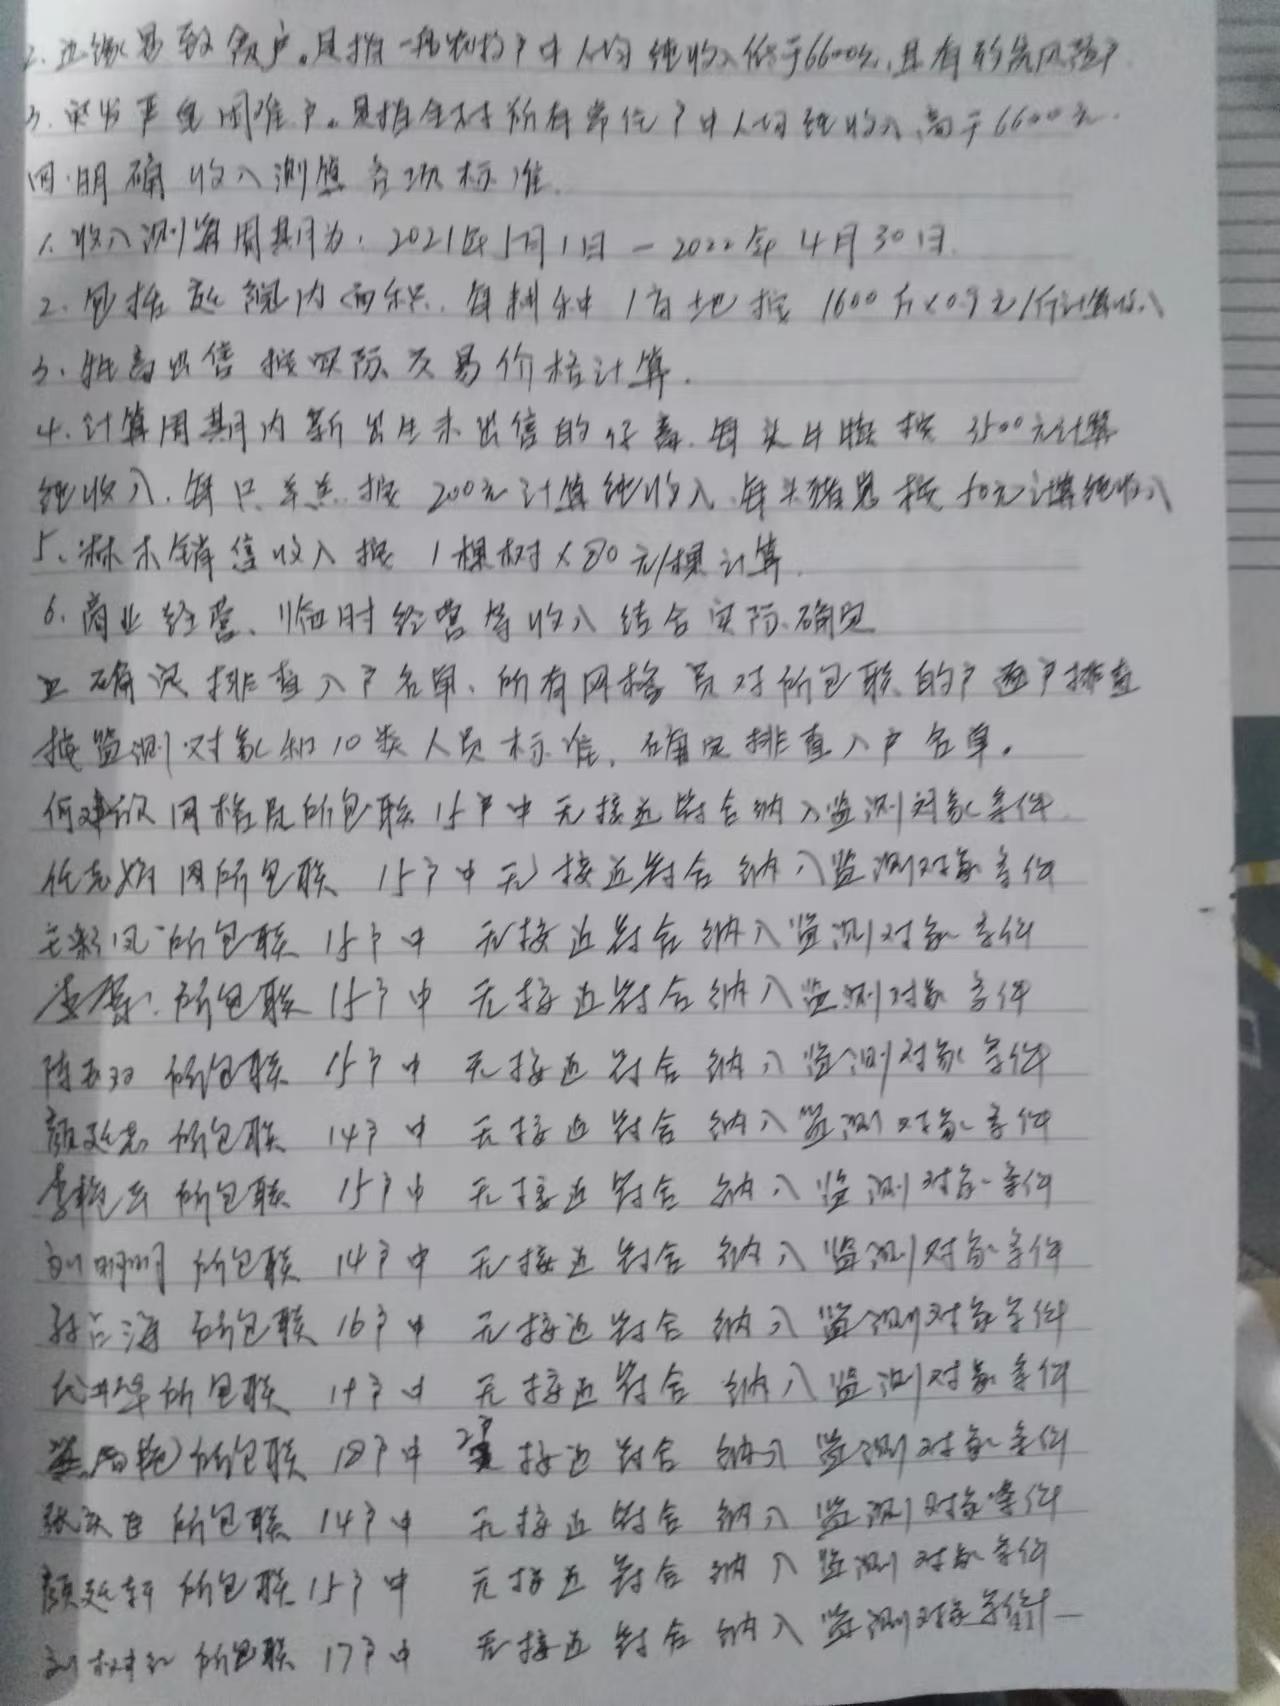 2. 边缘易致贫户。是指一般农户中人均纯收入低于6600元,且有致贫风险户
3. 突发严重困难户。是指全村所有常住户中人均纯收入高于6600元.
四.明确收入测算各项标准.
1. 收入测算周期为: 2021年5月1日 — 2022年4月30日.
2. 包括 院内面积. 每耕种1亩地按1600斤×0.9元/斤计算收入
3. 牲畜出售按实际交易价格计算.
4. 计算周期内新出生未出售的仔畜. 每头牛犊按3500元计算
纯收入. 每只羊羔按200元计算纯收入. 每头猪崽按50元计算纯收入
5、林木销售收入按1棵树×80元/棵计算.
6. 商业经营、临时经营等收入结合实际确定
五 确定排查入户名单. 所有网格员对所包联的户逐户排查
按监测对象和10类人员标准, 确定排查入户名单。
何建 网格员所包联15户中无接近符合纳入监测对象条件.
任 网所包联 15户中无接近符合纳入监测对象条件
凤 所包联 15户中 无接近符合纳入监测对象条件
所包联 15户中 无接近符合纳入监测对象条件
陈 所包联 15户中 无接近符合纳入监测对象条件
颜廷 所包联 14户中 无接近符合纳入监测对象条件
李艳 所包联 15户中 无接近符合纳入监测对象条件
刘明明 所包联 14户中 无接近符合纳入监测对象条件
海 所包联 16户中 无接近符合纳入监测对象条件
所包联 户中 无接近符合纳入监测对象条件
所包联 18户中 2户 接近符合纳入监测对象条件
张 所包联 14户中 无接近符合纳入监测对象条件
颜廷 所包联 15户中 无接近符合纳入监测对象条件
刘 所包联 17户中 无接近符合纳入监测对象条件